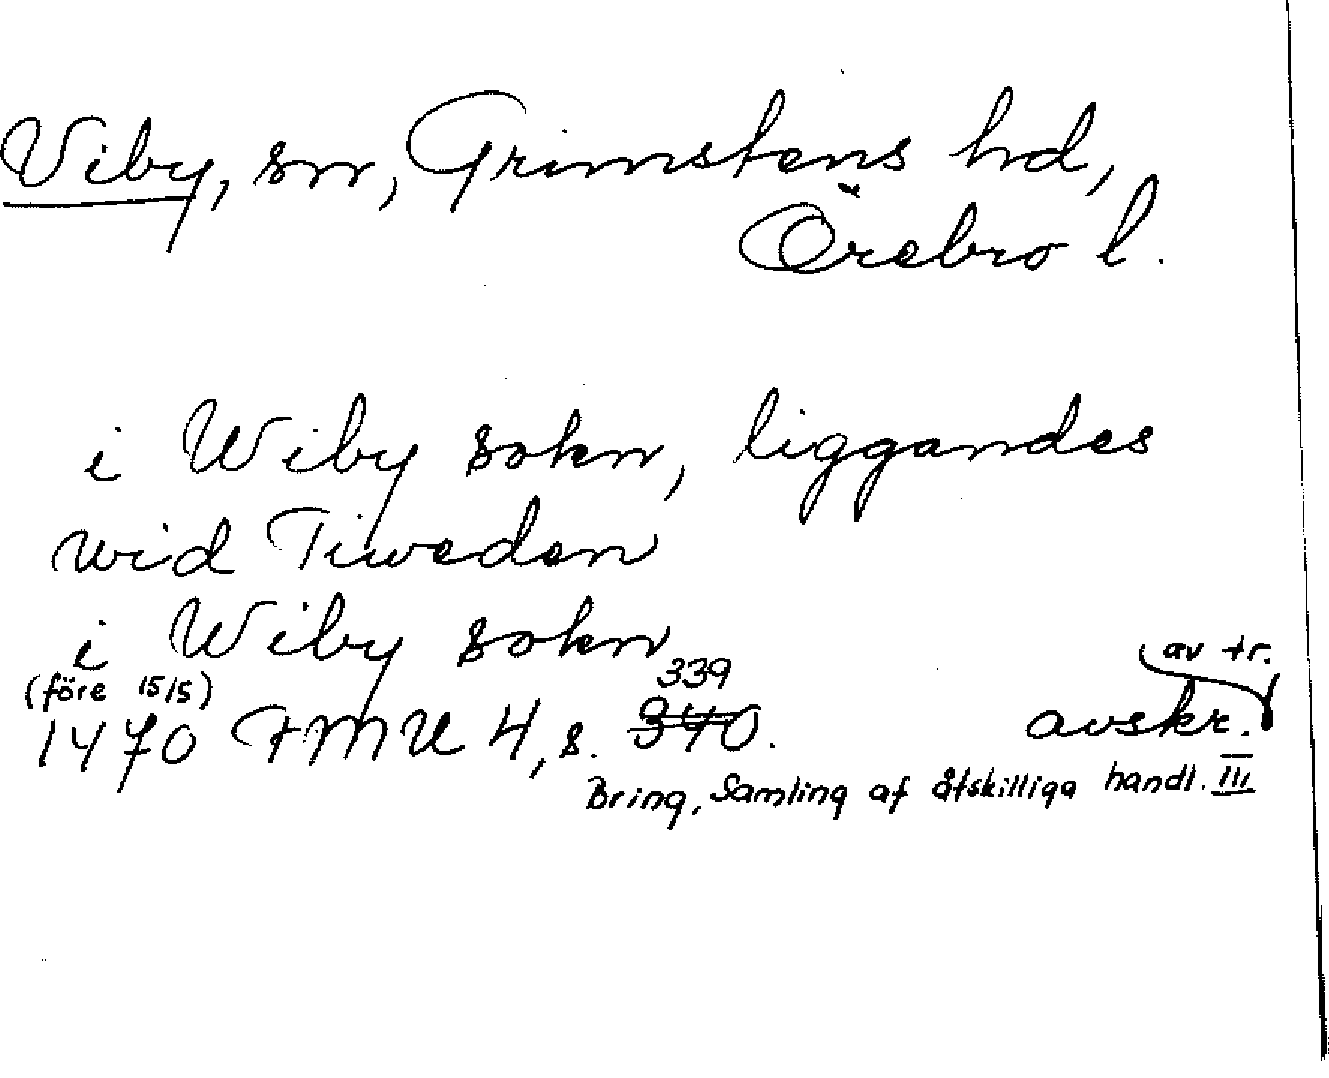 Viby, sn, Grimstens hd,
Örebro l.
i Wiby sokn, liggandes
wid Tiweden
i Wiby sokn
(före 15/5) 339 av tr.
1470 FMU 4, s. 340. avskr.
Bring, Samling af åtskilliga handl. III